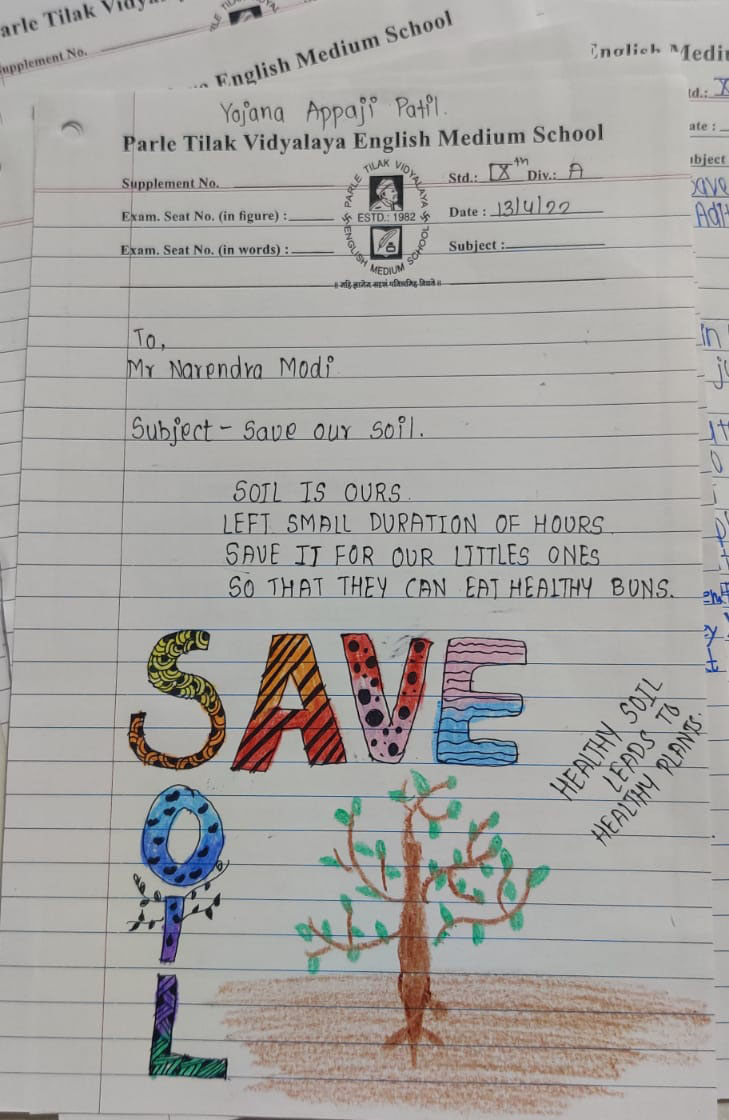 arle Tilak Vidya
Supplement No.
English Medium School
English Medi
Yojana Appaji Patil.
Parle Tilak Vidyalaya English Medium School
Supplement No.
Std.: IXth Div.: A
Exam. Seat No. (in figure) :
Date : 13/4/22
Exam. Seat No. (in words) :
Subject :
PARLE TILAK VIDYALAYA
ESTD.: 1982
ENGLISH MEDIUM SCHOOL
To,
Mr Narendra Modi
Subject - Save our soil.
SOIL IS OURS.
LEFT SMALL DURATION OF HOURS
SAVE IT FOR OUR LITTLES ONES
SO THAT THEY CAN EAT HEALTHY BUNS.
SAVE
SOIL
HEALTHY SOIL
LEADS TO
HEALTHY PLANTS.